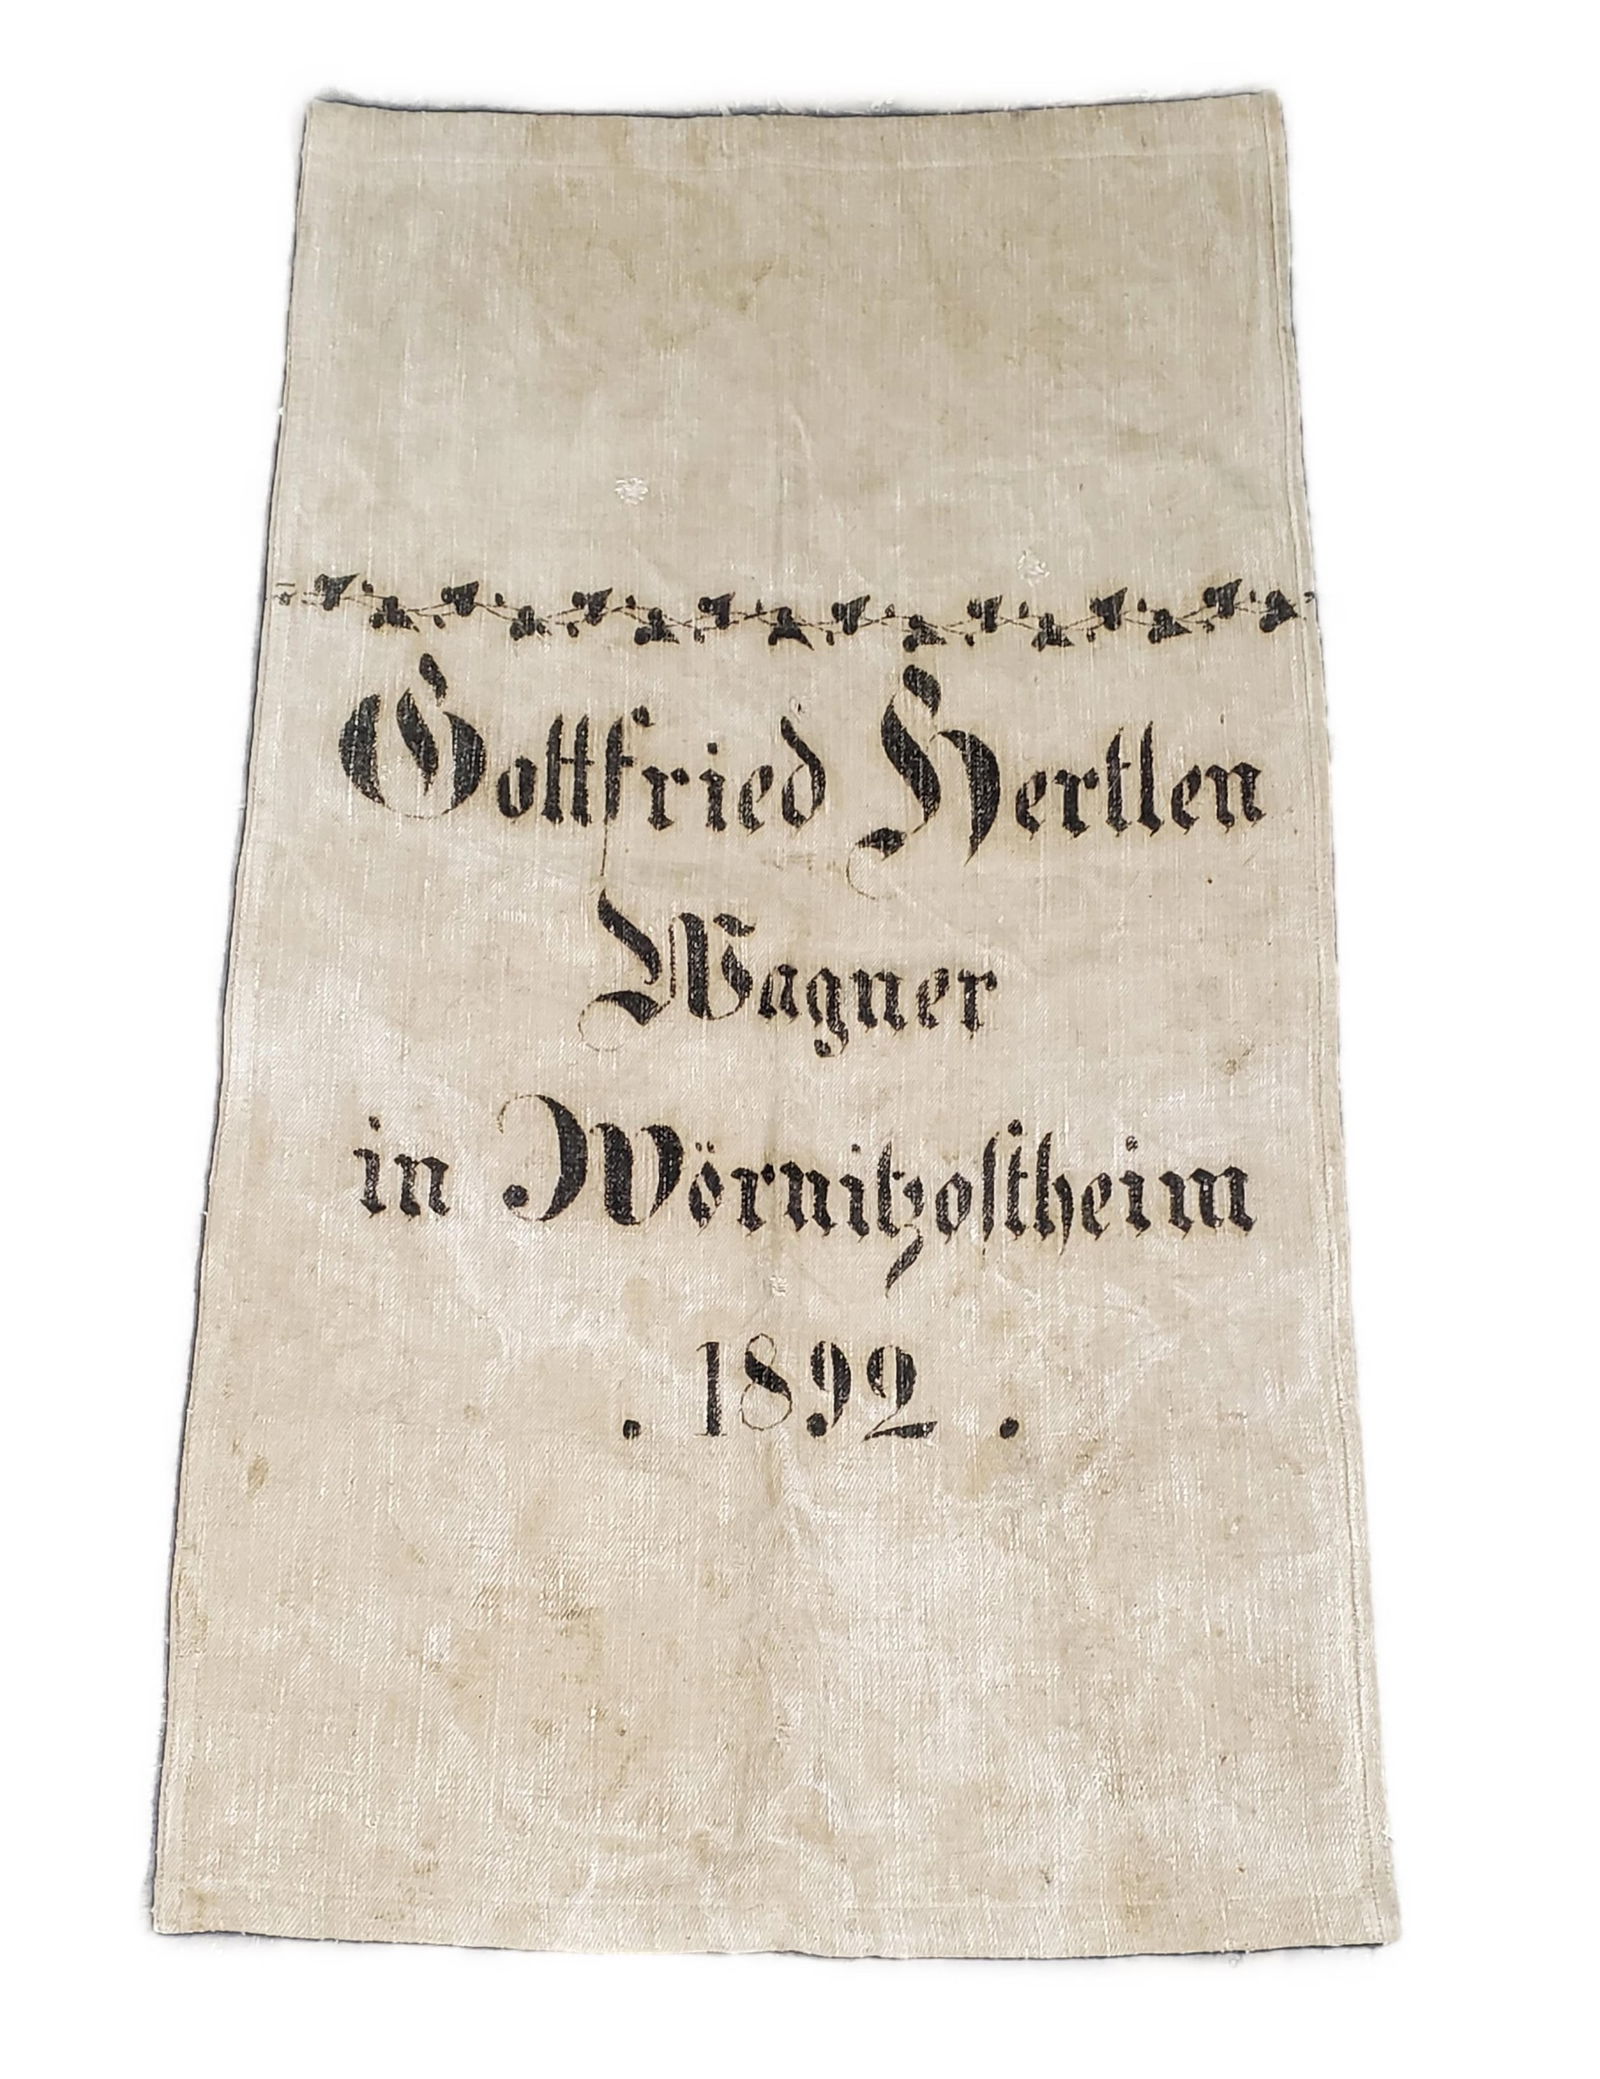 Gottfried Hertlen
Wagner
in Wörnitzostheim
. 1892 .